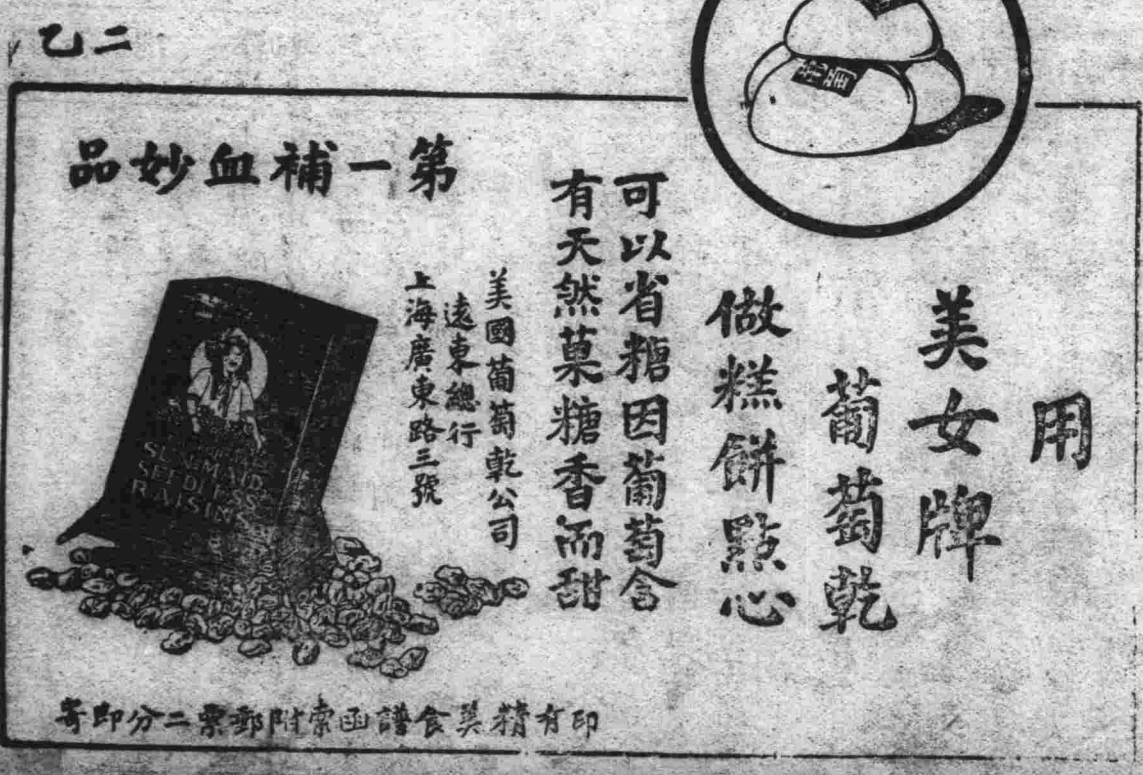 二乙
用
美女牌
葡萄乾
做糕餅點心
可以省糖因葡萄含
有天然菓糖香而甜
第一補血妙品
美國葡萄乾公司
遠東總行
上海廣東路三號
SUN-MAID
SEEDLESS
RAISINS
印有精美食譜函索附郵票二分即寄